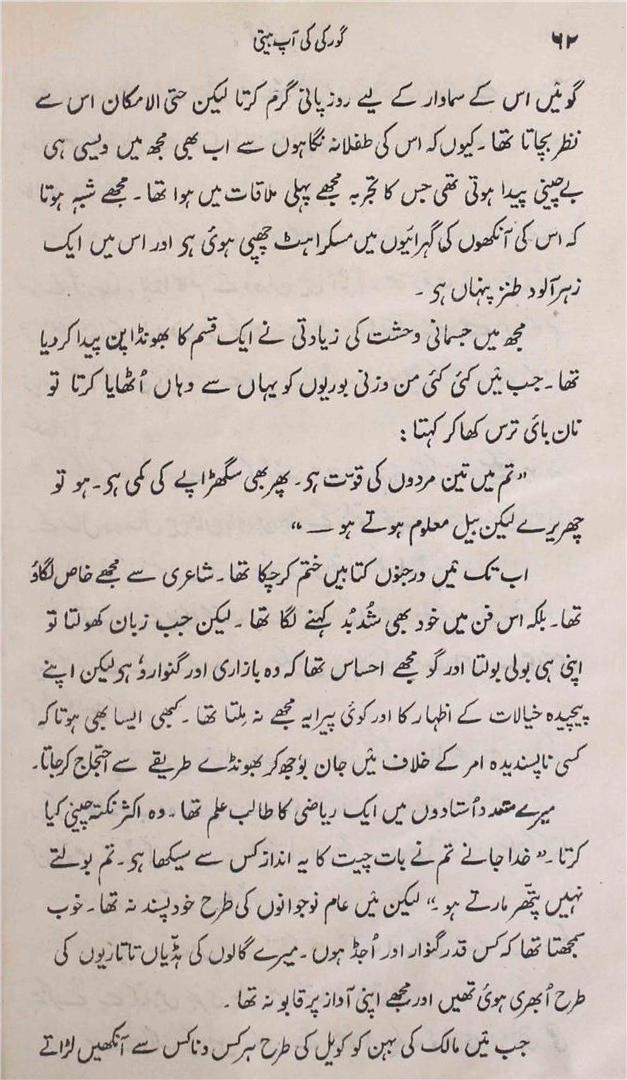 ۶۲ گورکی کی آپ بیتی
گو مَیں اس کے سماوار کے لیے روز پانی گرم کرتا لیکن حتی الامکان اس سے
نظر بچاتا تھا۔ کیوں کہ اس کی طفلانہ نگاہوں سے اب بھی مجھ میں ویسی ہی
بے چینی پیدا ہوتی تھی جس کا تجربہ مجھے پہلی ملاقات میں ہوا تھا۔ مجھے شبہ ہوتا
کہ اس کی آنکھوں کی گہرائیوں میں مسکراہٹ چھپی ہوئی ہو اور اس میں ایک
زہر آلود طنز پنہاں ہو۔
مجھ میں جسمانی وحشت کی زیادتی نے ایک قسم کا بھونڈاپن پیدا کر دیا
تھا۔ جب مَیں کئی کئی من وزنی بوریوں کو یہاں سے وہاں اُٹھایا کرتا تو
نان بائ ترس کھا کر کہتا:
”تم میں تین مردوں کی قوّت ہو۔ پھر بھی سگھڑاپے کی کمی ہو۔ ہو تو
چھریرے لیکن بیل معلوم ہوتے ہو —“
اب تک مَیں درجنوں کتابیں ختم کر چکا تھا۔ شاعری سے مجھے خاص لگاؤ
تھا۔ بلکہ اس فن میں خود بھی شُدبُد کہنے لگا تھا۔ لیکن جب زبان کھولتا تو
اپنی ہی بولی بولتا اور گو مجھے احساس تھا کہ وہ بازاری اور گنوارو ہو لیکن اپنے
پیچیدہ خیالات کے اظہار کا اور کوئ پیرایہ مجھے نہ مِلتا تھا۔ کبھی ایسا بھی ہوتا کہ
کسی ناپسندیدہ امر کے خلاف مَیں جان بوٗجھ کر بھونڈے طریقے سے احتجاج کر جاتا۔
میرے متعدد اُستادوں میں ایک ریاضی کا طالب علم تھا۔ وہ اکثر نکتہ چینی کیا
کرتا۔ ”خدا جانے تم نے بات چیت کا یہ انداز کس سے سیکھا ہو۔ تم بولتے
نہیں پتّھر مارتے ہو۔“ لیکن مَیں عام نوجوانوں کی طرح خود پسند نہ تھا۔ خوب
سمجھتا تھا کہ کس قدر گنوار اور اُجڈ ہوں۔ میرے گالوں کی ہڈّیاں تاتاریوں کی
طرح اُبھری ہوئ تھیں اور مجھے اپنی آواز پر قابو نہ تھا۔
جب مَیں مالک کی بہن کو کویل کی طرح ہر کس و ناکس سے آنکھیں لڑاتے